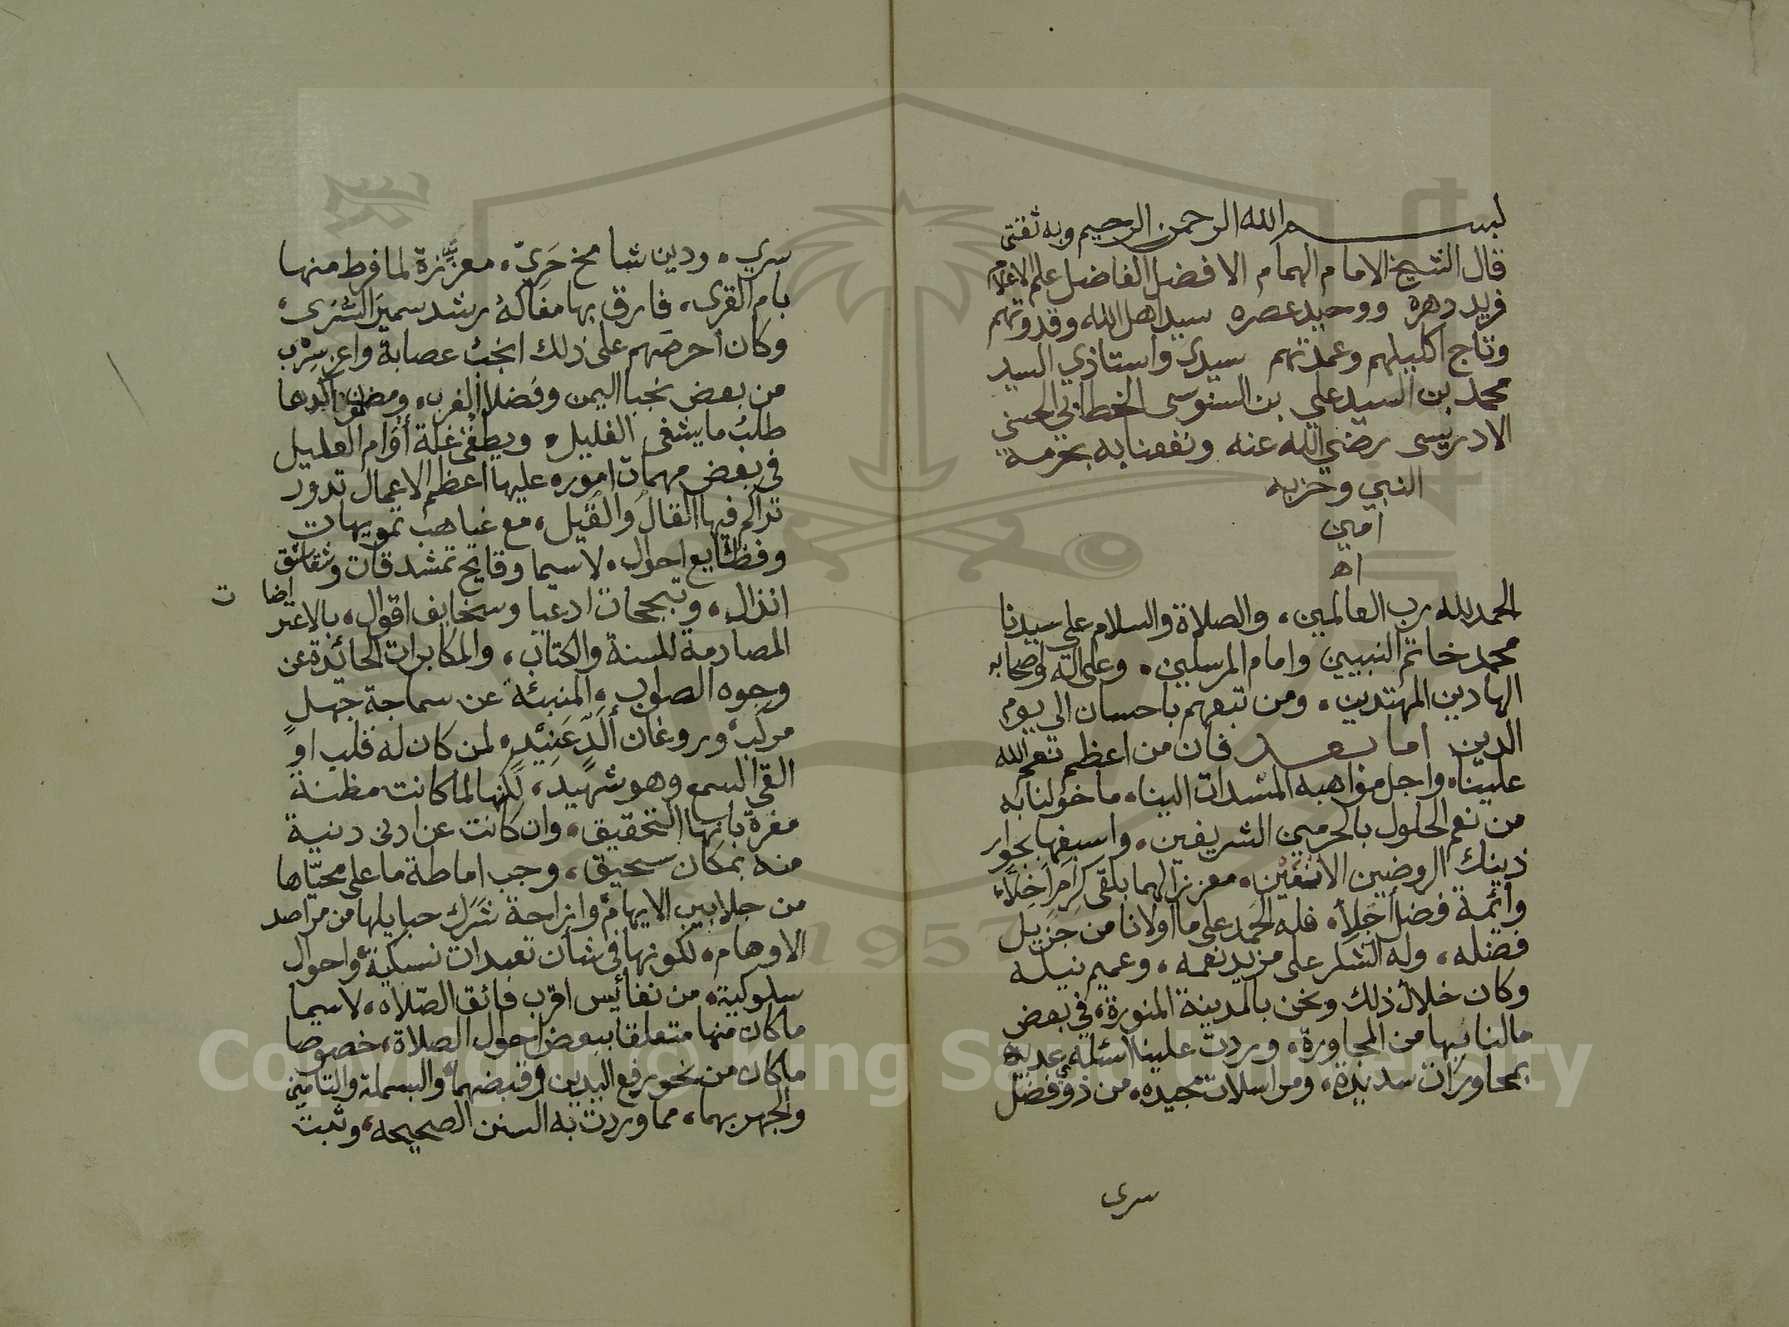 بسم الله الرحمن الرحيم وبه ثقتى
قال الشيخ الامام الهمام الافضل الفاضل علم الاعلام
فريد دهره ووحيد عصره سيد اهل الله وقدوتهم
وتاج اكليلهم وعمدتهم سيدى واستاذي السيد
محمد بن السيد علي بن السنوسى الخطابي الحسني
الادريسى رضي الله عنه ونفعنا به بحرمة
النبي وحزبه
امين
اه
الحمد لله رب العالمين، والصلاة والسلام على سيدنا
محمد خاتم النبيين وامام المرسلين، وعلى اله وصحابه
الهادين المهتدين، ومن تبعهم باحسان الى يوم
الدين اما بعد فان من اعظم نعم الله
علينا، واجل مواهبه المسدات الينا، ما خولنا به
من نعم الحلول بالحرمين الشريفين، واسبغها بجوار
ذينك الروضين الانيقين، معززا لهما بلقى كرام اخلاء،
وائمة فضل أجلاء، فله الحمد على ما اولانا من جزيل
فضله، وله الشكر على مزيد نعمه، وعميم نيله
وكان خلال ذلك ونحن بالمدينة المنورة، في بعض
مالنا بها من المجاورة، وردت علينا اسئلة عديدة
بمحاورات سديدة، ومراسلات مجيده، من ذوى فضل
سرى
سري، ودين شامخ حَرِيّ، معزِّزة لما فرط منها
بام القرى، فارق بها مقاله رشد سمير السُّرَى،
وكان أحرصهم على ذلك انجب عصابة واعز سِرْب
من بعض نجبا اليمن وفضلا الغرب، آكدها
طلب ما يشفى الغليل، ويطفى غلة أوام العليل
فى بعض مهمات اموره عليها اعظم الاعمال تدور
تراكم فيها القال والقيل، مع غياهب تمويهات
وفظائع احوال، لاسيما وقايح تمشدقات وشقاشق
انذال، وتبجحات ادعيا وسخايف اقوال، بالاعتراضات
المصادمة للسنة والكتاب، والمكابرات الحائدة عن
وجوه الصواب، المنبئة عن سماجة جهل
مركب، وروغان ألدّ عنيد، لمن كان له قلب او
القى السمع وهو شهيد، لكنها لما كانت مظنة
مغرة بانها التحقيق، وان كانت عن ادنى دنية
منه بمكان سحيق، وجب اماطة ما على محيّاها
من جلابيب الايهام، وازاحة شَرَك حبايلها من مراصد
الاوهام، لكونها فى شأن تعبدات نسكية، واحوال
سلوكية، من نفائس اقرب فائق الصّلاه، لاسيما
ما كان منها متعلقا ببعض احوال الصلاة، خصوصا
ما كان من نحو رفع اليدين وقبضهما، والبسملة والتامين
والجهر بهما، مما وردت به السنن الصحيحه، وثبت